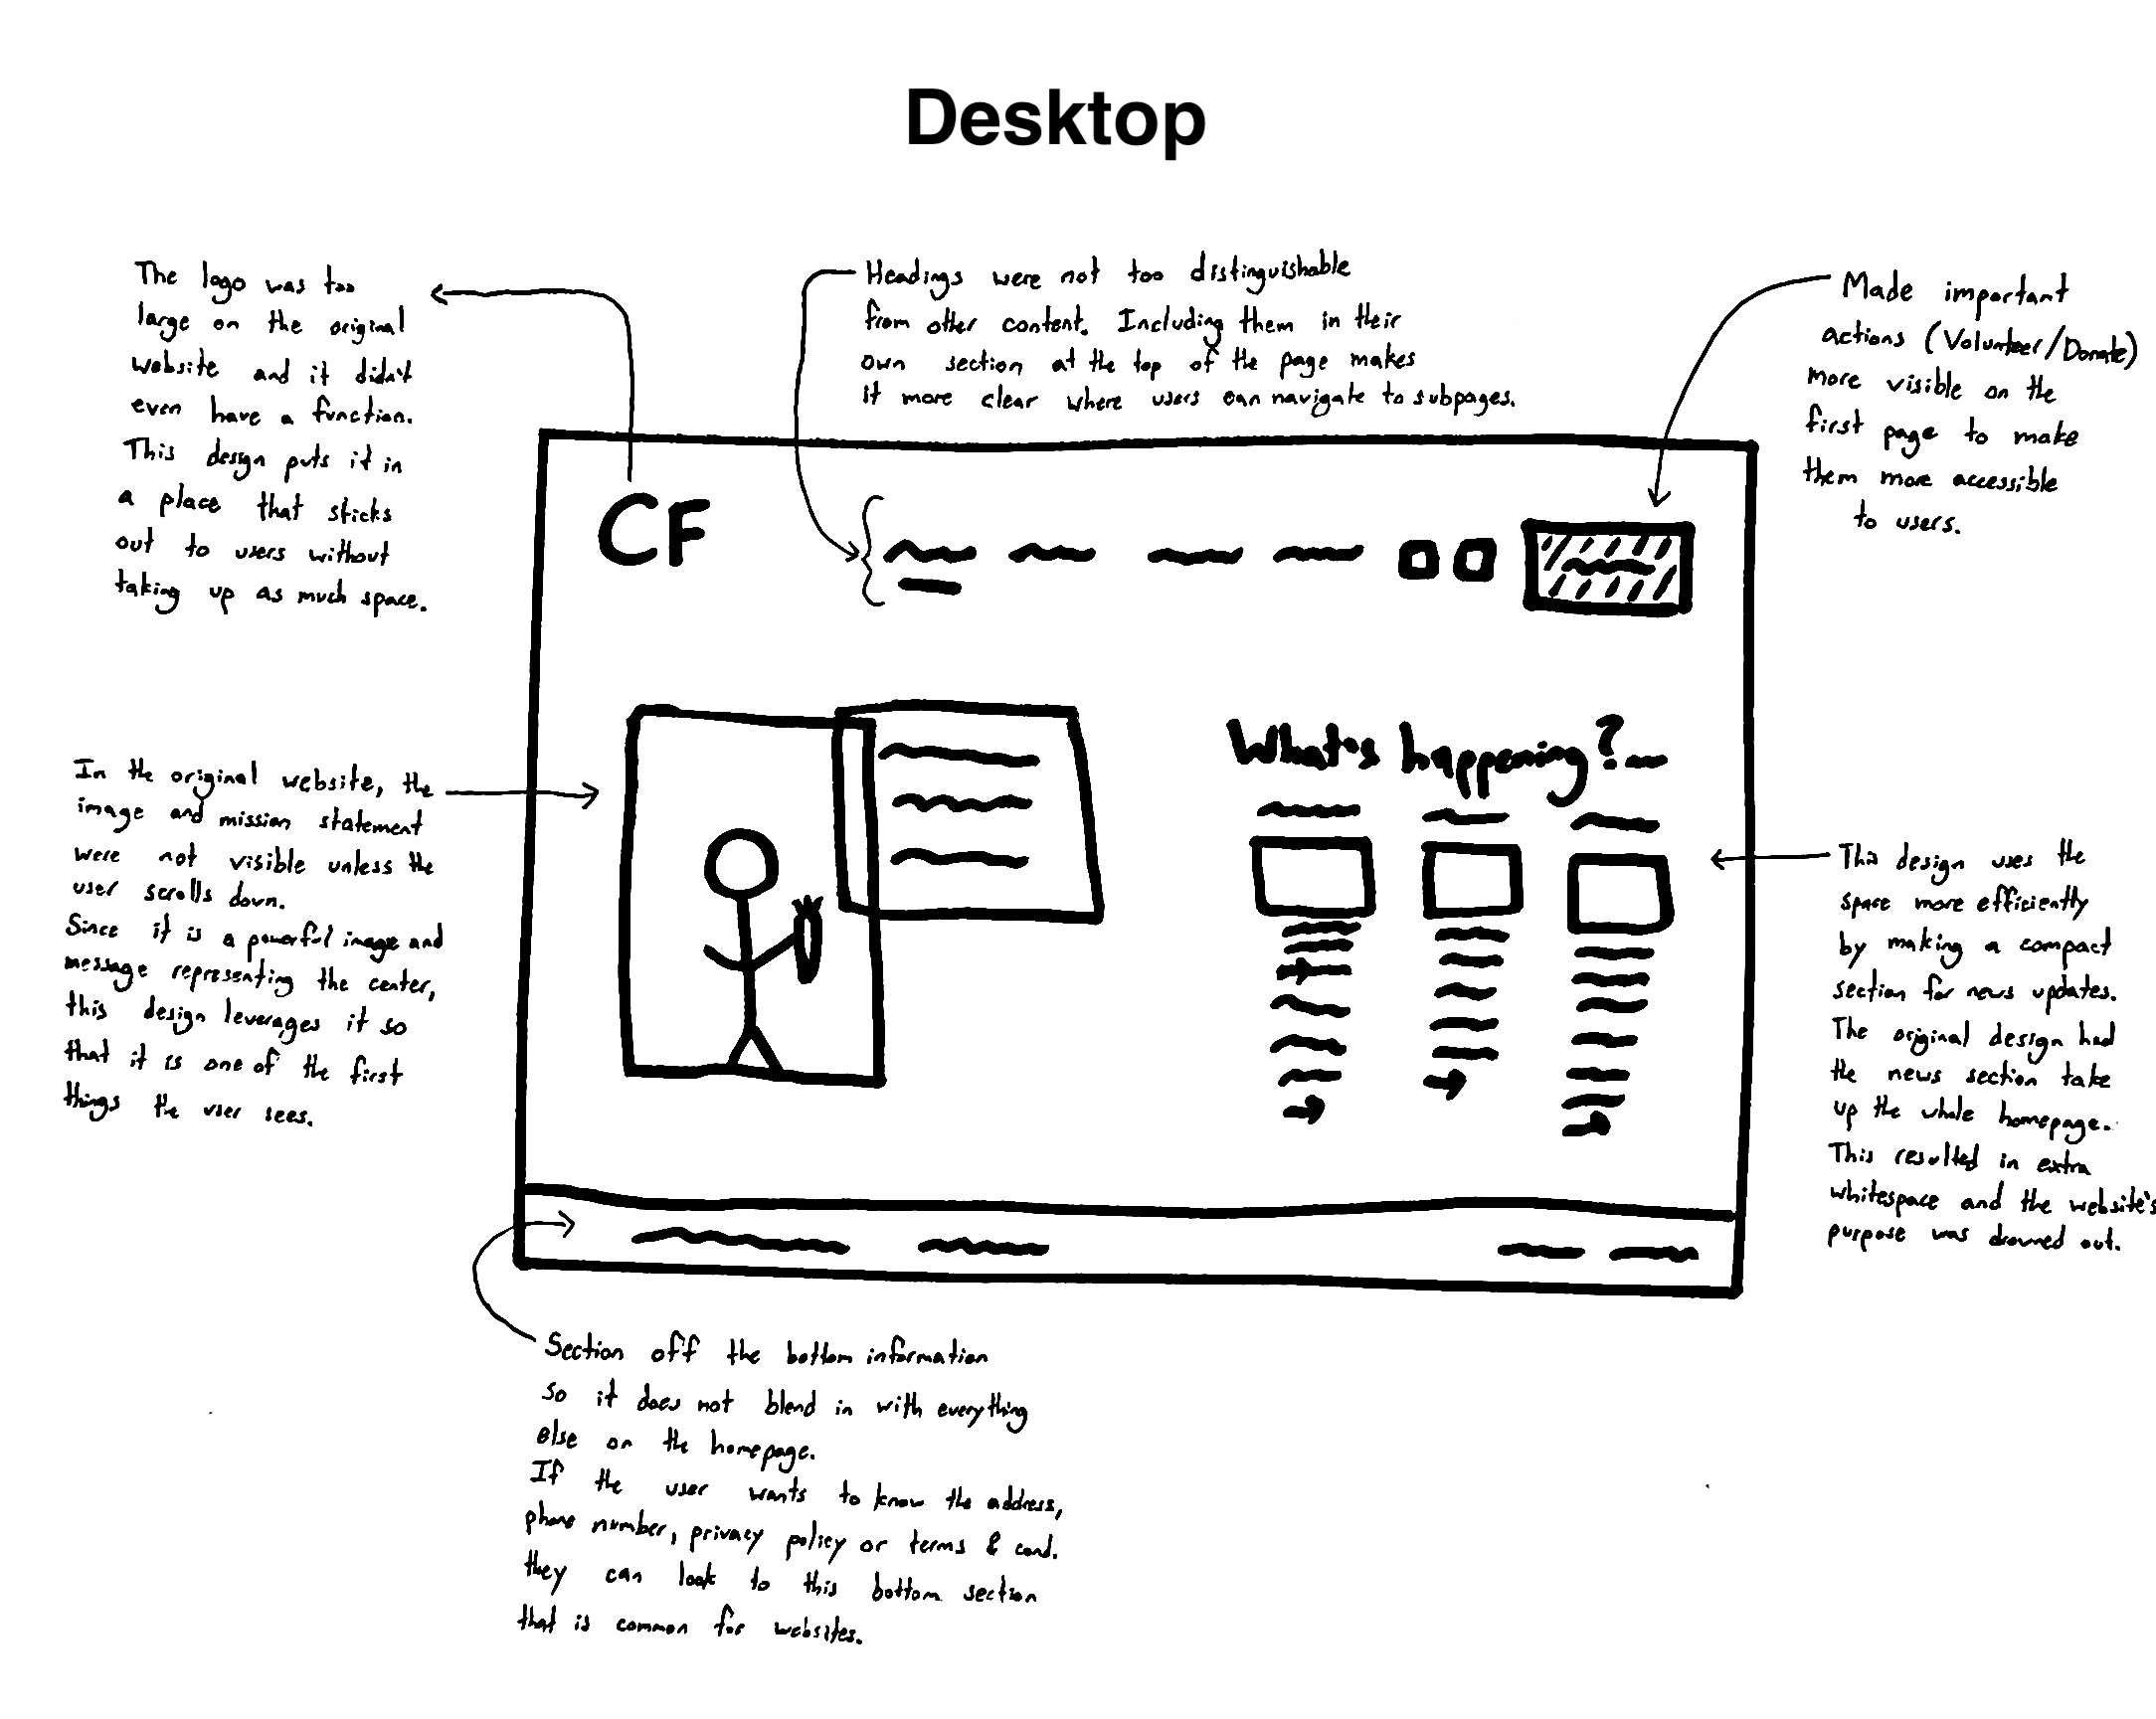 Desktop
The logo was too
large on the original
website and it didn't
even have a function.
This design puts it in
a place that sticks
out to users without
taking up as much space.
Headings were not too distinguishable
from other content. Including them in their
own section at the top of the page makes
it more clear where users can navigate to subpages.
Made important
actions (Volunteer/Donate)
more visible on the
first page to make
them more accessible
to users.
CF
In the original website, the
image and mission statement
were not visible unless the
user scrolls down.
Since it is a powerful image and
message representing the center,
this design leverages it so
that it is one of the first
things the user sees.
What's happening?
This design uses the
space more efficiently
by making a compact
section for news updates.
The original design had
the news section take
up the whole homepage.
This resulted in extra
whitespace and the website's
purpose was drowned out.
Section off the bottom information
so it does not blend in with everything
else on the homepage.
If the user wants to know the address,
phone number, privacy policy or terms & cond.
they can look to this bottom section
that is common for websites.